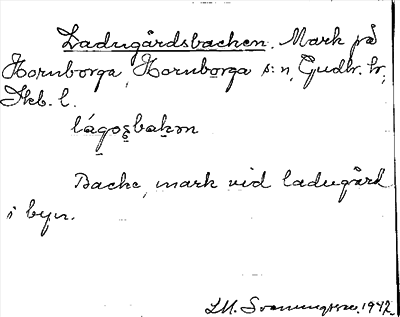 Ladugårdsbacken. Mark på
Hornborga, Hornborga s:n, Gudh. hr,
Skb. l.
lágos̥bakən
Backe, mark vid ladugård
i byn.
1942.